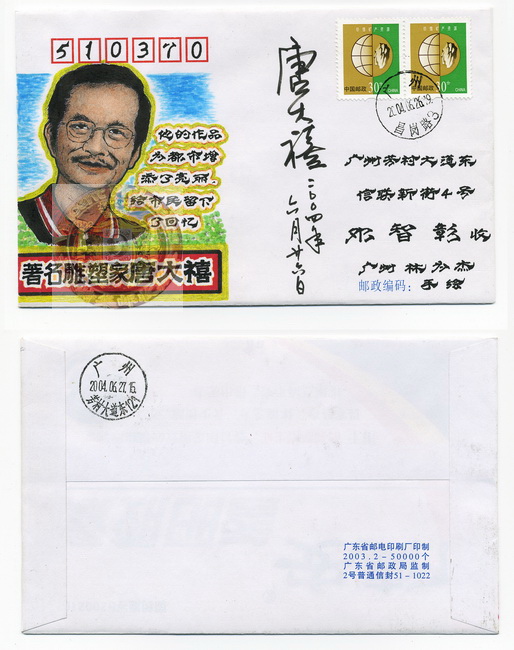 510370
中国邮政 30分 CHINA
中国邮政 30分 CHINA
广州
2004.06.26.19
昌岗路3
唐大禧
二〇〇四年
六月廿六日
他的作品
为都市增
添了亮丽,
给市民留下
了回忆
著名雕塑家唐大禧
广州芳村大道东
信联新街4号
邓智彰 收
广州 林为杰
手绘
邮政编码:
广州
2004.06.27.15
芳村大道东(29)
广东省邮电印刷厂印制
2003.2-50000个
广东省邮政局监制
2号普通信封51-1022